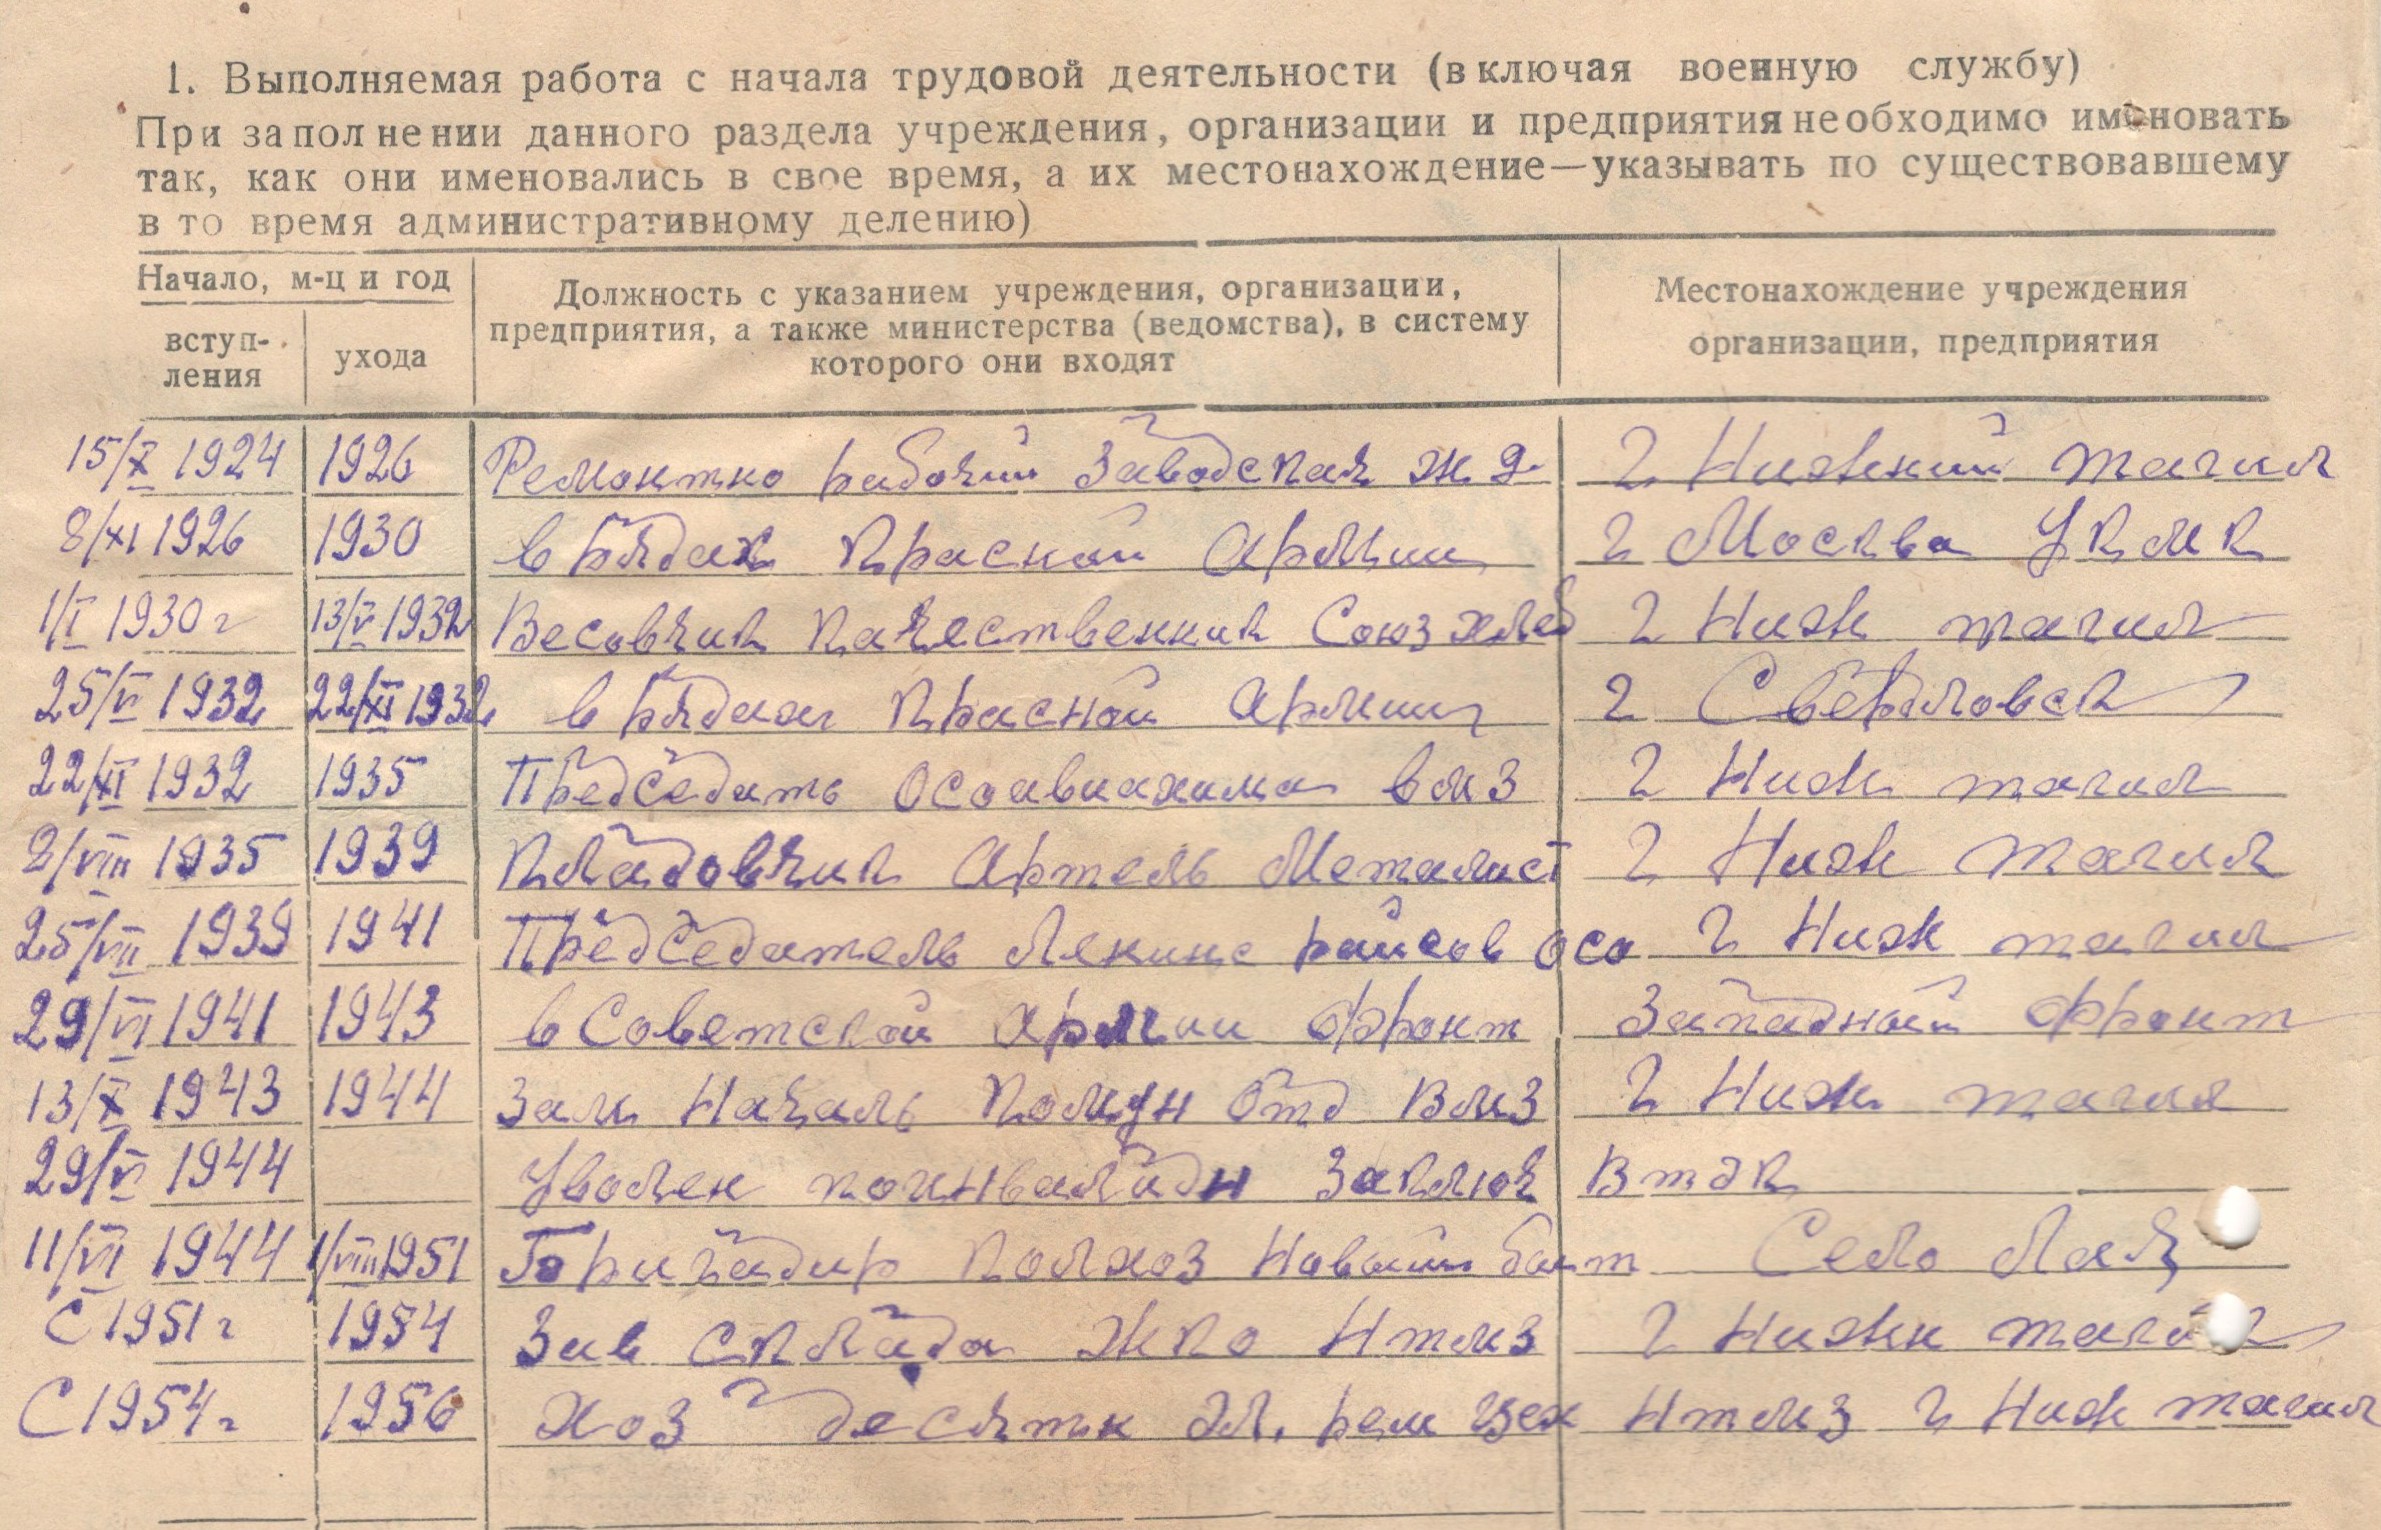 1. Выполняемая работа с начала трудовой деятельности (включая военную службу)
При заполнении данного раздела учреждения, организации и предприятия необходимо именовать
так, как они именовались в свое время, а их местонахождение—указывать по существовавшему
в то время административному делению)
Начало, м-ц и год
вступ-
ления
ухода
Должность с указанием учреждения, организации,
предприятия, а также министерства (ведомства), в систему
которого они входят
Местонахождение учреждения
организации, предприятия
15/X 1924 1926 Ремонтно рабочий Заводская ж д г Нижний Тагил
8/XI 1926 1930 в рядах Красной Армии г Москва УКМК
1/I 1930 г 13/V 1932 Весовчик качественник Союзхлеб г Ниж Тагил
25/V 1932 22/XI 1932 в рядах Красной Армии г Свердловск
22/XI 1932 1935 Председать Осоавиахима ВМЗ г Ниж Тагил
2/VIII 1935 1939 Кладовчик Артель Металист г Ниж Тагил
25/VII 1939 1941 Председатель Ленинс райсов осо г Ниж Тагил
29/VI 1941 1943 в Советской Армии Фронт Западный Фронт
13/X 1943 1944 Зам Началь Комун Отд ВМЗ г Ниж Тагил
29/V 1944 Уволен по инвалидн Заключ ВТЭК
11/VI 1944 1/VIII 1951 Бригадир Колхоз Новый быт Село Лая
С 1951 г 1954 Зав склада ЖКО НТМЗ г Нижн Тагил
С 1954 г 1956 Хоз десятн Эл. рем цех НТМЗ г Ниж Тагил